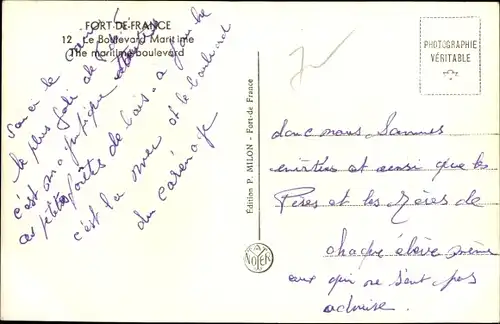 FORT-DE-FRANCE
12 Le Boulevard Maritime
The maritime boulevard
le plus joli de
c'est magnifique
ces petites forêts de bois - à gauche
c'est la mer et le boulevard
du carénage
Édition P. MILON - Fort-de France
PHOTOGRAPHIE
VÉRITABLE
donc nous sommes
invitées et ainsi que les
Pères et les Mères de
chaque élève même
ceux qui ne sont pas
admise.